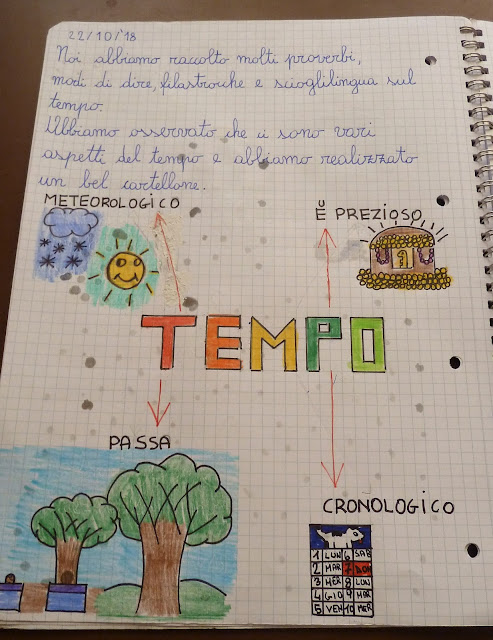 22/10/'18
Noi abbiamo raccolto molti proverbi,
modi di dire, filastrocche e scioglilingua sul
tempo.
Abbiamo osservato che ci sono vari
aspetti del tempo e abbiamo realizzato
un bel cartellone.
METEOROLOGICO
È PREZIOSO
TEMPO
PASSA
CRONOLOGICO
1 LUN 6 SAB
2 MAR 7 DOM
3 MER 8 LUN
4 GIO 9 MAR
5 VEN 10 MER